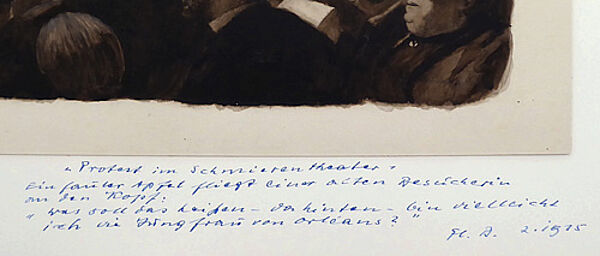 "Protest im Schmierentheater"
Ein fauler Apfel fliegt einer alten Besucherin
an den Kopf:
" Was soll das heißen – da hinten – bin vielleicht
ich die Jungfrau von Orléans? "
2.1975